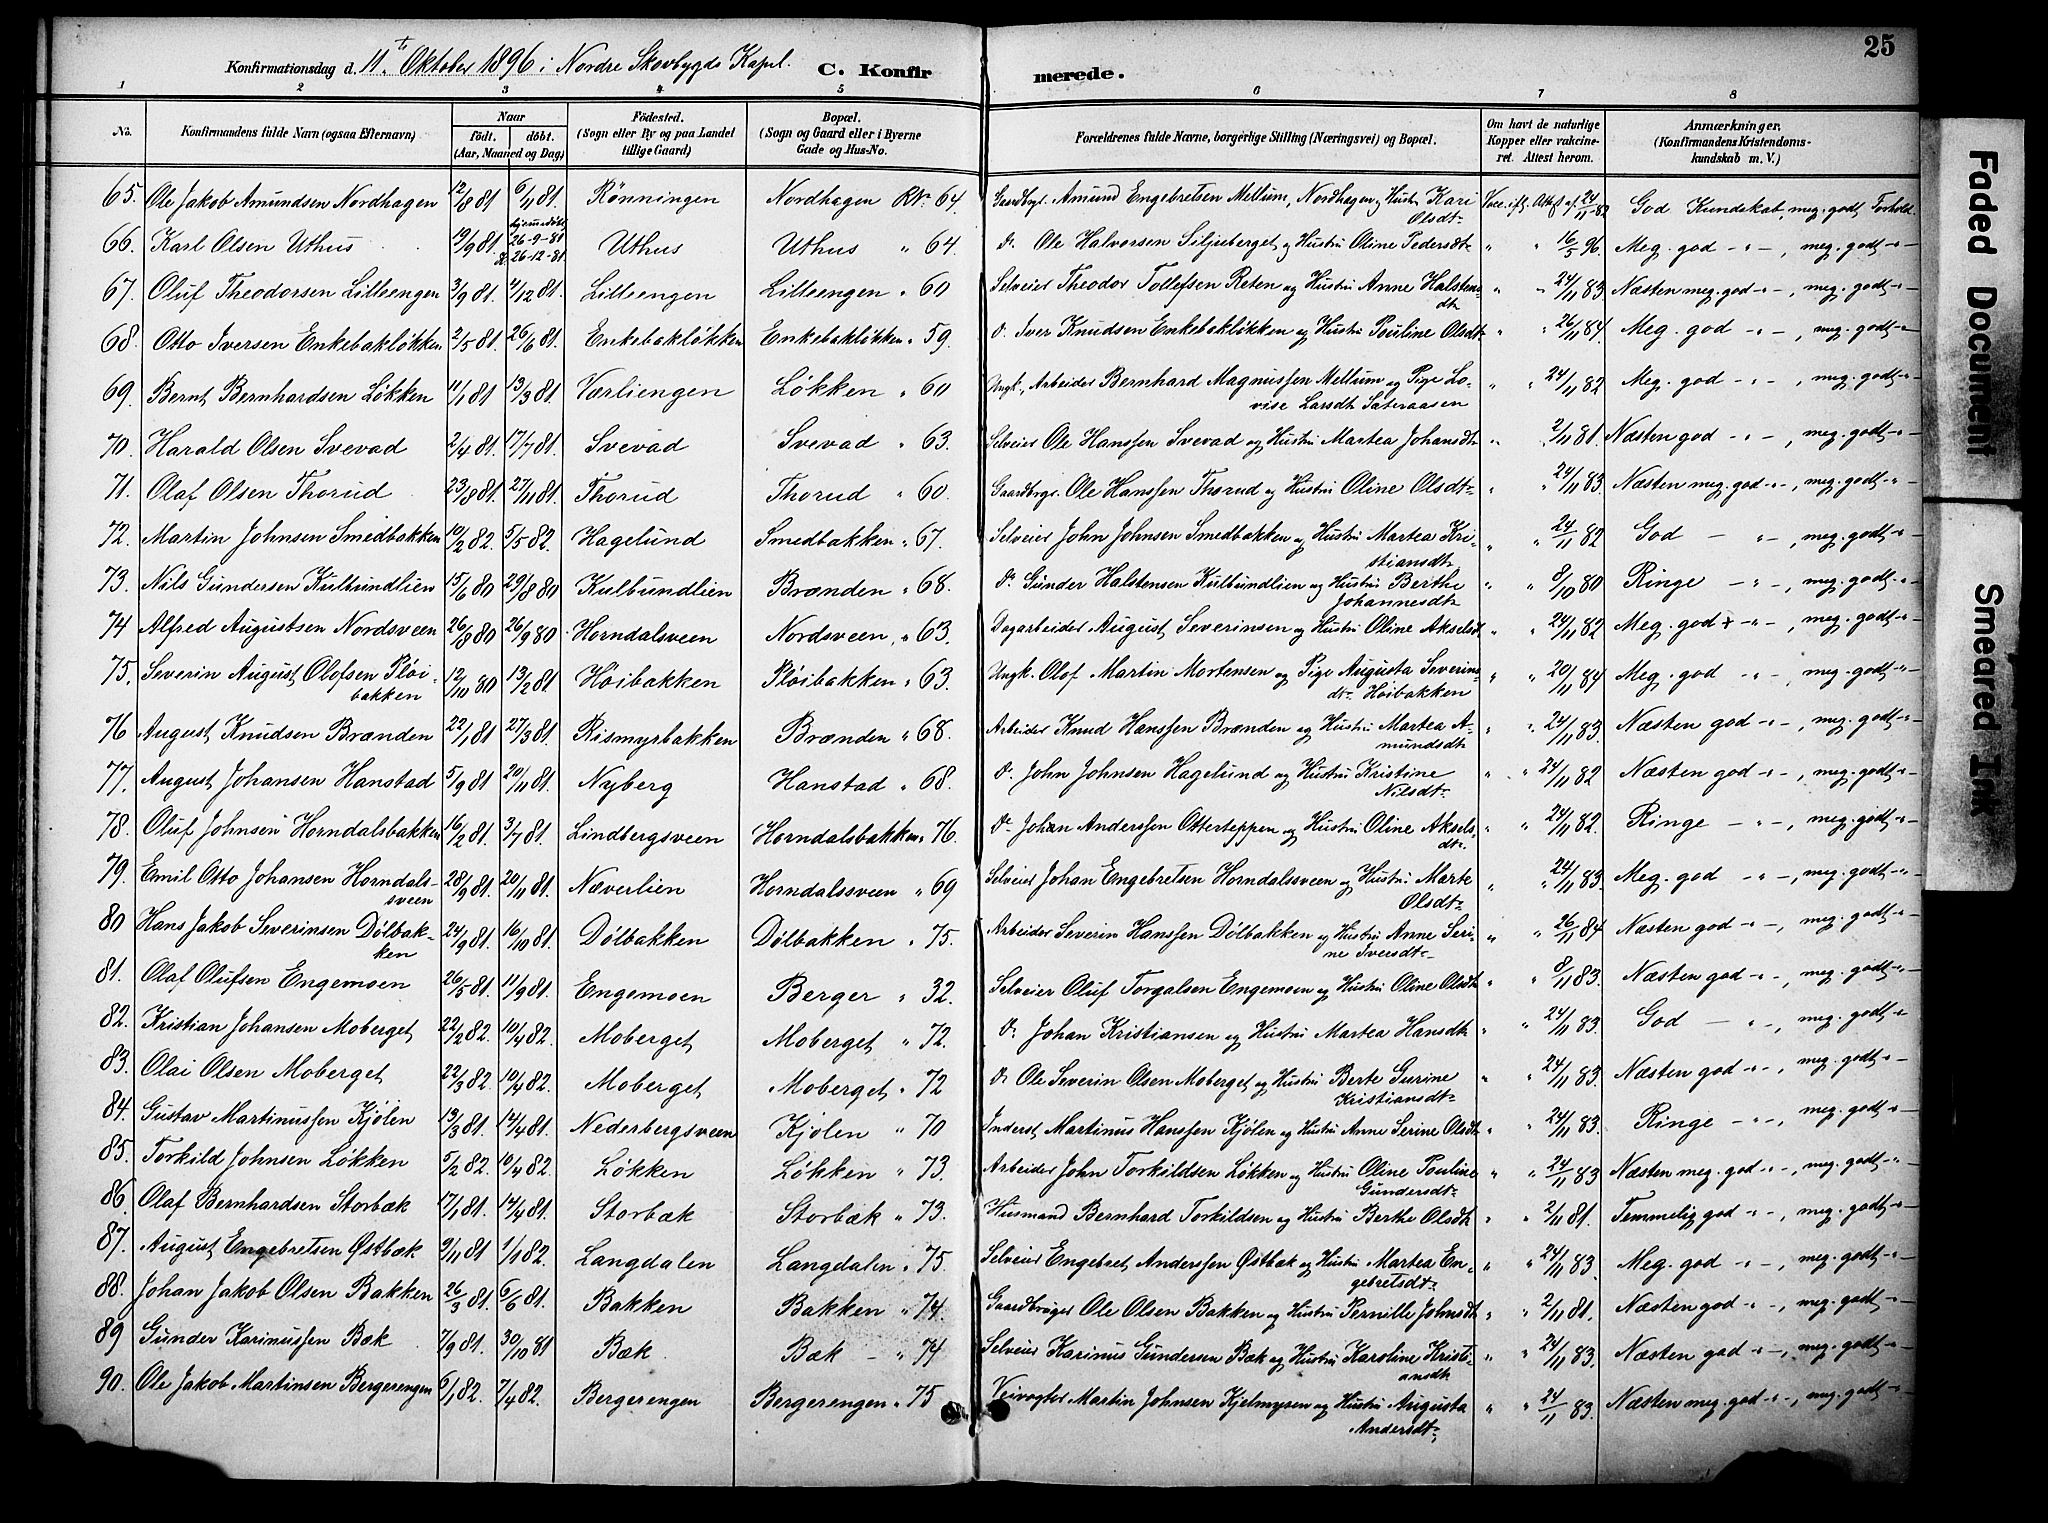 25
Konfirmationsdag d. 11te Oktober 1896 i Nordre Skovbygds Kapel. C. Konfirmerede.
1 2 3 4 5 6 7 8
No. Konfirmandens fulde Navn (ogsaa Efternavn) Naar født. døbt. (Aar, Maaned og Dag) Fødested. (Sogn eller By og paa Landet tillige Gaard) Bopæl. (Sogn og Gaard eller i Byerne Gade og Hus-No. Forældrenes fulde Navne, borgerlige Stilling (Næringsvei) og Bopæl. Om havt de naturlige Kopper eller vakcineret. Attest herom. Anmærkninger. (Konfirmandens Kristendomskundskab m. V.)
65. Ole Jakob Amundsen Nordhagen 12/8 81 6/11 81. Rönningen Nordhagen RN. 64. Gaardbgr. Amund Engebretsen Mellum, Nordhagen og Hustru Kari Olsdt. Vacc. ifl. Attest af 24/11-82 God Kundskab, meg. godt Forhold
66. Karl Olsen Uthus 19/9 81. hjemmedøbt 26-9-81 K. 26-12-81 Uthus Uthus " 64. d. Ole Halvorsen Siljuberget og Hustru Oline Pedersdt. " " 16/5 96. Meg. god -"-, meg. godt -"-
67. Oluf Theodorsen Lilleengen 3/9 81. 4/12 81. Lilleengen Lilleengen " 60 Selveier Theodor Tollefsen Reten og Hustru Anne Halstensdt. " " 24/11 83 Næsten meg. god -"-, meg. godt -"-
68. Otto Iversen Enkebakløkken 2/5 81. 26/6 81. Enkebakløkken Enkebakløkken " 59. d. Iver Knudsen Enkebakløkken og Hustru Pouline Olsdt. " " 26/11 84. Meg. god -"-, meg. godt -"-
69. Bernt Bernhardsen Løkken 11/1 81 13/3 81. Værliengen Løkken " 60 Ungk., Arbeider Bernhard Magnussen Mellum og Pige Lovise Larsdt. Sateraasen " " 24/11 82 Meg. god -"-, meg. godt -"-
70. Harald Olsen Svevad 2/4 81. 17/7 81. Svevad Svevad " 63. Selveier Ole Hanssen Svevad og Hustru Martea Johansdt. " " 2/11 81. Næsten god -"-, meg. godt -"-
71. Olaf Olsen Thorud 23/8 81. 27/11 81. Thorud Thorud " 60. Gaardbrgr. Ole Hanssen Thorud og Hustru Oline Olsdt. " " 24/11 83. Næsten meg. god -"-, meg. godt -"-
72. Martin Johnsen Smedbakken 10/2 82. 5/5 82. Hagelund Smedbakken " 67. Selveier John Johnsen Smedbakken og Hustru Martea Kristiansdt. " " 24/11 82 God -"-, meg. godt -"-
73. Nils Gundersen Kulbundlien 15/6 80 29/8 80 Kulbundlien Brænden " 68. d. Gunder Halstensen Kulbundlien og Hustru Berthe Johannesdt. " " 8/10 80 Ringe -"-, meg. godt -"-
74 Alfred Augustsen Nordsveen 26/8 80 26/9 80 Horndalsveen Nordsveen " 63. Dagarbeider August Severinsen og Hustru Oline Akselsdt. " " 24/11 82 Meg. god -"-, meg. godt -"-
75. Severin August Olofsen Pløibakken 12/10 80 13/2 81 Høibakken Pløibakken " 63. Ungk. Olof Martin Mortensen og Pige Augusta Severinsdt. Høibakken " " 20/11 84 Meg. god -"-, meg. godt -"-
76 August Knudsen Brænden 22/1 81 27/3 81. Rismyrbakken Brænden " 68. Arbeider Knud Hanssen Brænden og Hustru Martea Amundsdt. " " 24/11 83. Næsten god -"-, meg. godt -"-
77. August Johansen Hanstad 5/9 81 20/11 81. Nyberg Hanstad " 68. d. John Johnsen Hagelund og Hustru Kristine Nilsdt. " " 24/11 82 Næsten god -"-, meg. godt -"-
78. Oluf Johnsen Horndalsbakken 16/2 81. 3/7 81. Lindbergsveen Horndalsbakken " 76. d. Johan Anderssen Otterteppen og Hustru Oline Akselsdt. " " 24/11 82. Ringe -"-, meg. godt -"-
79. Emil Otto Johansen Horndalssveen 28/9 81. 20/11 81. Næverlien Horndalssveen " 69 Selveier Johan Engebretsen Horndalssveen og Hustru Marte Olsdt. " " 24/11 83. Meg. god -"-, meg. godt -"-
80 Hans Jakob Severinsen Dølbakken 24/9 81. 16/10 81. Dølbakken Dølbakken " 75. Arbeider Severin Hanssen Dølbakken og Hustru Anne Serine Iversdt. " " 26/11 84 Næsten god -"-, meg. godt -"-
81. Olaf Olufsen Engemoen 26/5 81. 11/9 81. Engemoen Berger " 32. Selveier Oluf Torgalsen Engemoen og Hustru Oline Olsdt. " " 8/11 83. Næsten god -"-, meg. godt -"-
82. Kristian Johansen Moberget 22/2 82. 10/4 82. Moberget Moberget " 72. d. Johan Kristiansen og Hustru Martea Hansdt. " " 24/11 83. God -"-, meg. godt -"-
83. Olai Olsen Moberget 22/3 82. 10/4 82. Moberget Moberget " 72 d. Ole Severin Olsen Moberget og Hustru Berte Gurine Kristiansdt. " " 24/11 83. Næsten god -"-, meg. godt -"-
84. Gustav Martinussen Kjölen 13/3 81. 14/4 81. Nederbergsveen Kjölen " 70 Inderst Martinus Hanssen Kjölen og Hustru Anne Serine Olsdt. " " 24/11 83. Ringe -"-, meg. godt -"-
85. Torkild Johnsen Løkken 5/2 82. 10/4 82. Løkken Løkken " 73. Arbeider John Torkildsen Løkken og Hustru Oline Pouline Gundersdt. " " 24/11 83 Næsten meg. god -"-, meg. godt -"-
86. Olaf Bernhardsen Storbæk 17/1 81. 14/4 81. Storbæk Storbæk " 73. Husmand Bernhard Torkildsen og Hustru Berthe Olsdt. " " 2/11 81. Temmelig god -"-, meg. godt -"-
87. August Engebretsen Østbæk 9/11 81 1/1 82. Langdalen Langdalen " 75. Selveier Engebret Anderssen Østbæk og Hustru Martea Engebretsdt. " " 24/11 83. Meg. god -"-, meg. godt -"-
88. Johan Jakob Olsen Bakken 26/3 81. 6/6 81. Bakken Bakken " 74. Gaardbruger Ole Olsen Bakken og Hustru Pernille Johnsdt. " " 2/11 81. Næsten god -"-, meg. godt -"-
89 Gunder Karinussen Bæk 7/9 81. 30/10 81 Bæk. Bæk - " 74 Selveier Karinus Gundersen Bæk og Hustru Karoline Kristiansdt. " " 24/11 83. Næsten god -"-, meg. godt -"-
90. Ole Jakob Martinsen Bergerengen 6/1 82. 7/4 82. Bergerengen Bergerengen " 75 Veivogter Martin Johnsen Kjelmyren og Hustru Augusta Andersdt. " " 24/11 83. Næsten meg. god -"-, meg. godt -"-
Faded Document
Smeared Ink